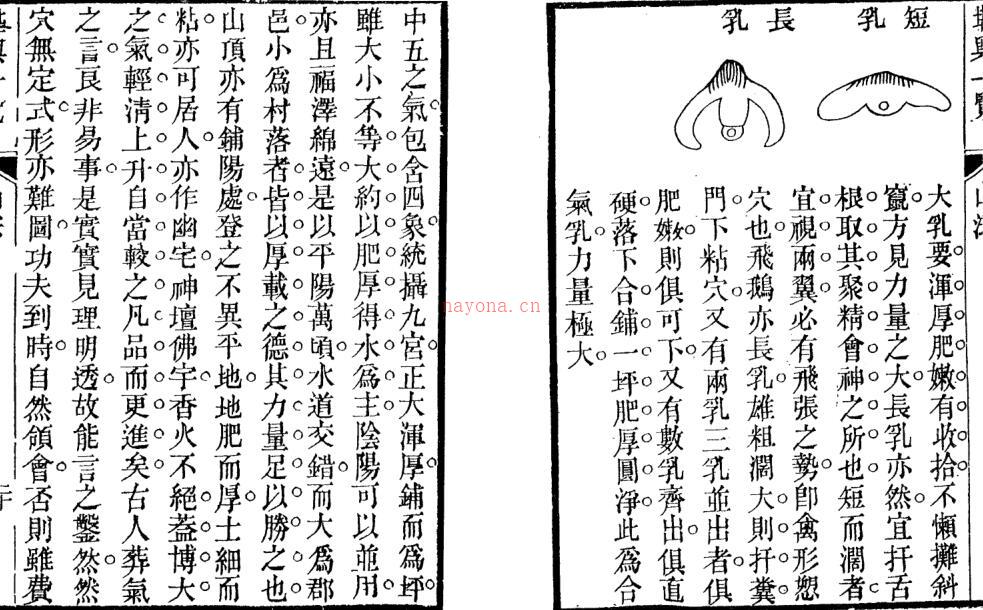 短乳
長乳
大乳要渾厚肥嫩有收拾不懶攤斜
竄方見力量之大長乳亦然宜扦舌
根取其聚精會神之所也短而濶者
宜視兩翼必有飛張之勢卽禽形恕
穴也飛鵝亦長乳雄粗濶大則扦糞
門下粘穴又有兩乳三乳並出者俱
肥嫩則俱可下又有數乳齊出俱直
硬落下合鋪一坪肥厚圓淨此爲合
氣乳力量極大
中五之氣包含四象統攝九宮正大渾厚鋪而爲坪
雖大小不等大約以肥厚得水爲主陰陽可以並用
亦且福澤綿遠是以平陽萬頃水道交錯而大爲郡
邑小爲村落者皆以厚載之德其力量足以勝之也
山頂亦有鋪陽處登之不異平地地肥而厚土細而
粘亦可居人亦作幽宅神壇佛宇香火不絕葢博大
之氣輕淸上升自當較之凡品而更進矣古人葬氣
之言良非易事是實實見理明透故能言之鑿然然
穴無定式形亦難圖功夫到時自然領會否則雖費
nayona.cn